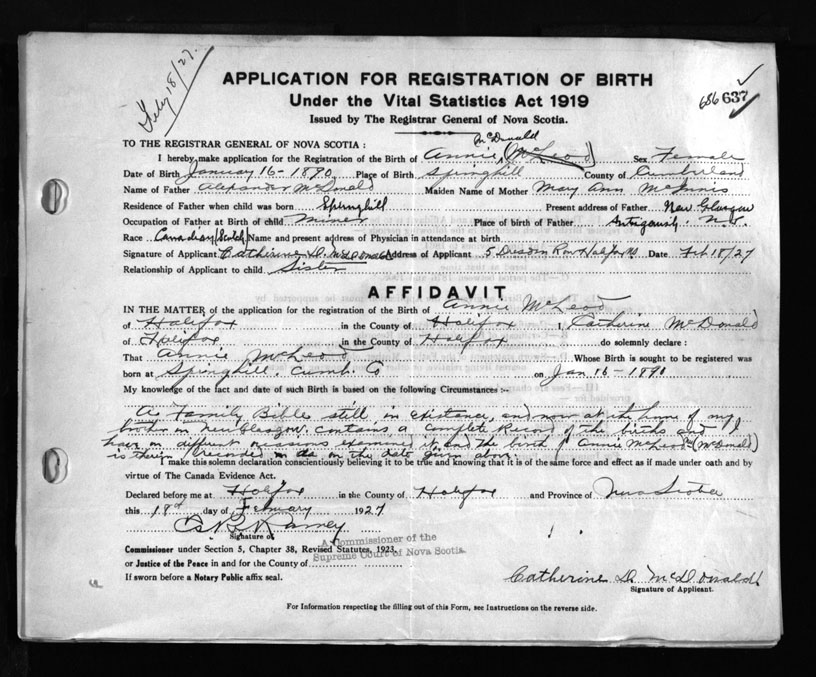 Feby 18/27.
APPLICATION FOR REGISTRATION OF BIRTH
Under the Vital Statistics Act 1919
686 637
Issued by The Registrar General of Nova Scotia.
McDonald
TO THE REGISTRAR GENERAL OF NOVA SCOTIA:
I hereby make application for the Registration of the Birth of Annie (McLeod) Sex Female
Date of Birth January 16-1890 Place of Birth Springhill County of Cumberland
Name of Father Alexander McDonald Maiden Name of Mother Mary Ann McInnis
Residence of Father when child was born Springhill Present address of Father New Glasgow
Occupation of Father at Birth of child Miner Place of birth of Father Antigonish. N.S.
Race Canadian (Scotch) Name and present address of Physician in attendance at birth
Signature of Applicant Catherine D. McDonald Address of Applicant 5 Row Halifax Date Feb 18/27
Relationship of Applicant to child Sister
AFFIDAVIT
IN THE MATTER of the application for the registration of the Birth of Annie McLeod
of Halifax in the County of Halifax I, Catherine McDonald
of Halifax in the County of Halifax do solemnly declare:
That Annie McLeod Whose Birth is sought to be registered was
born at Springhill, Cumb. Co on Jan 16-1890
My knowledge of the fact and date of such Birth is based on the following Circumstances:-
A Family Bible still in existance, and now at the home of my
brother in New Glasgow. contains a Complete Record of the births and I
have on different occasions examined it, and the birth of Annie McLeod (McDonald)
is therein recorded as on the date given above.
I make this solemn declaration conscientiously believing it to be true and knowing that it is of the same force and effect as if made under oath and by
virtue of The Canada Evidence Act.
Declared before me at Halifax in the County of Halifax and Province of Nova Scotia
this 18th day of February 1927
Signature of
A Commissioner of the
Supreme Court of Nova Scotia.
Commissioner under Section 5, Chapter 38, Revised Statutes, 1923,
or Justice of the Peace in and for the County of
If sworn before a Notary Public affix seal.
Catherine D. McDonald
Signature of Applicant.
For Information respecting the filling out of this Form, see Instructions on the reverse side.